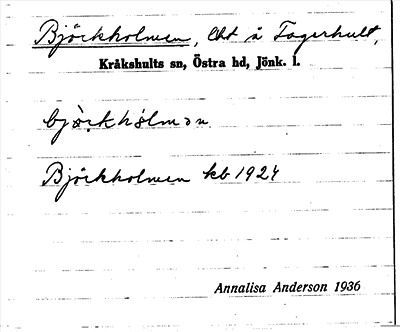 Björkholmen, lht å Fagerhult,
Kråkshults sn, Östra hd, Jönk. l.
bjö̀rkhólmən
Björkholmen kb 1924
Annalisa Anderson 1936